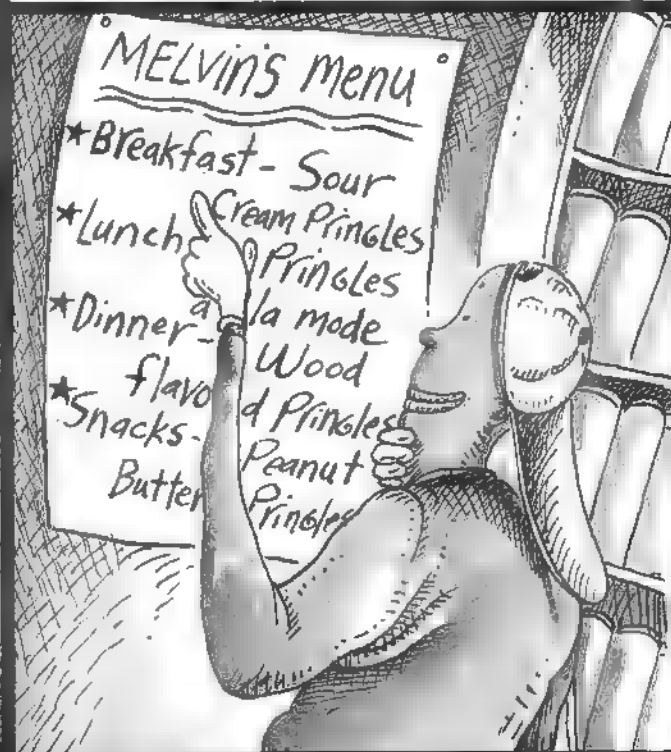 MELVIN'S menu
*Breakfast - Sour
Cream Pringles
*Lunch Pringles
a la mode
*Dinner - Wood
flavo d Pringles
*Snacks - Peanut
Butter Pringles